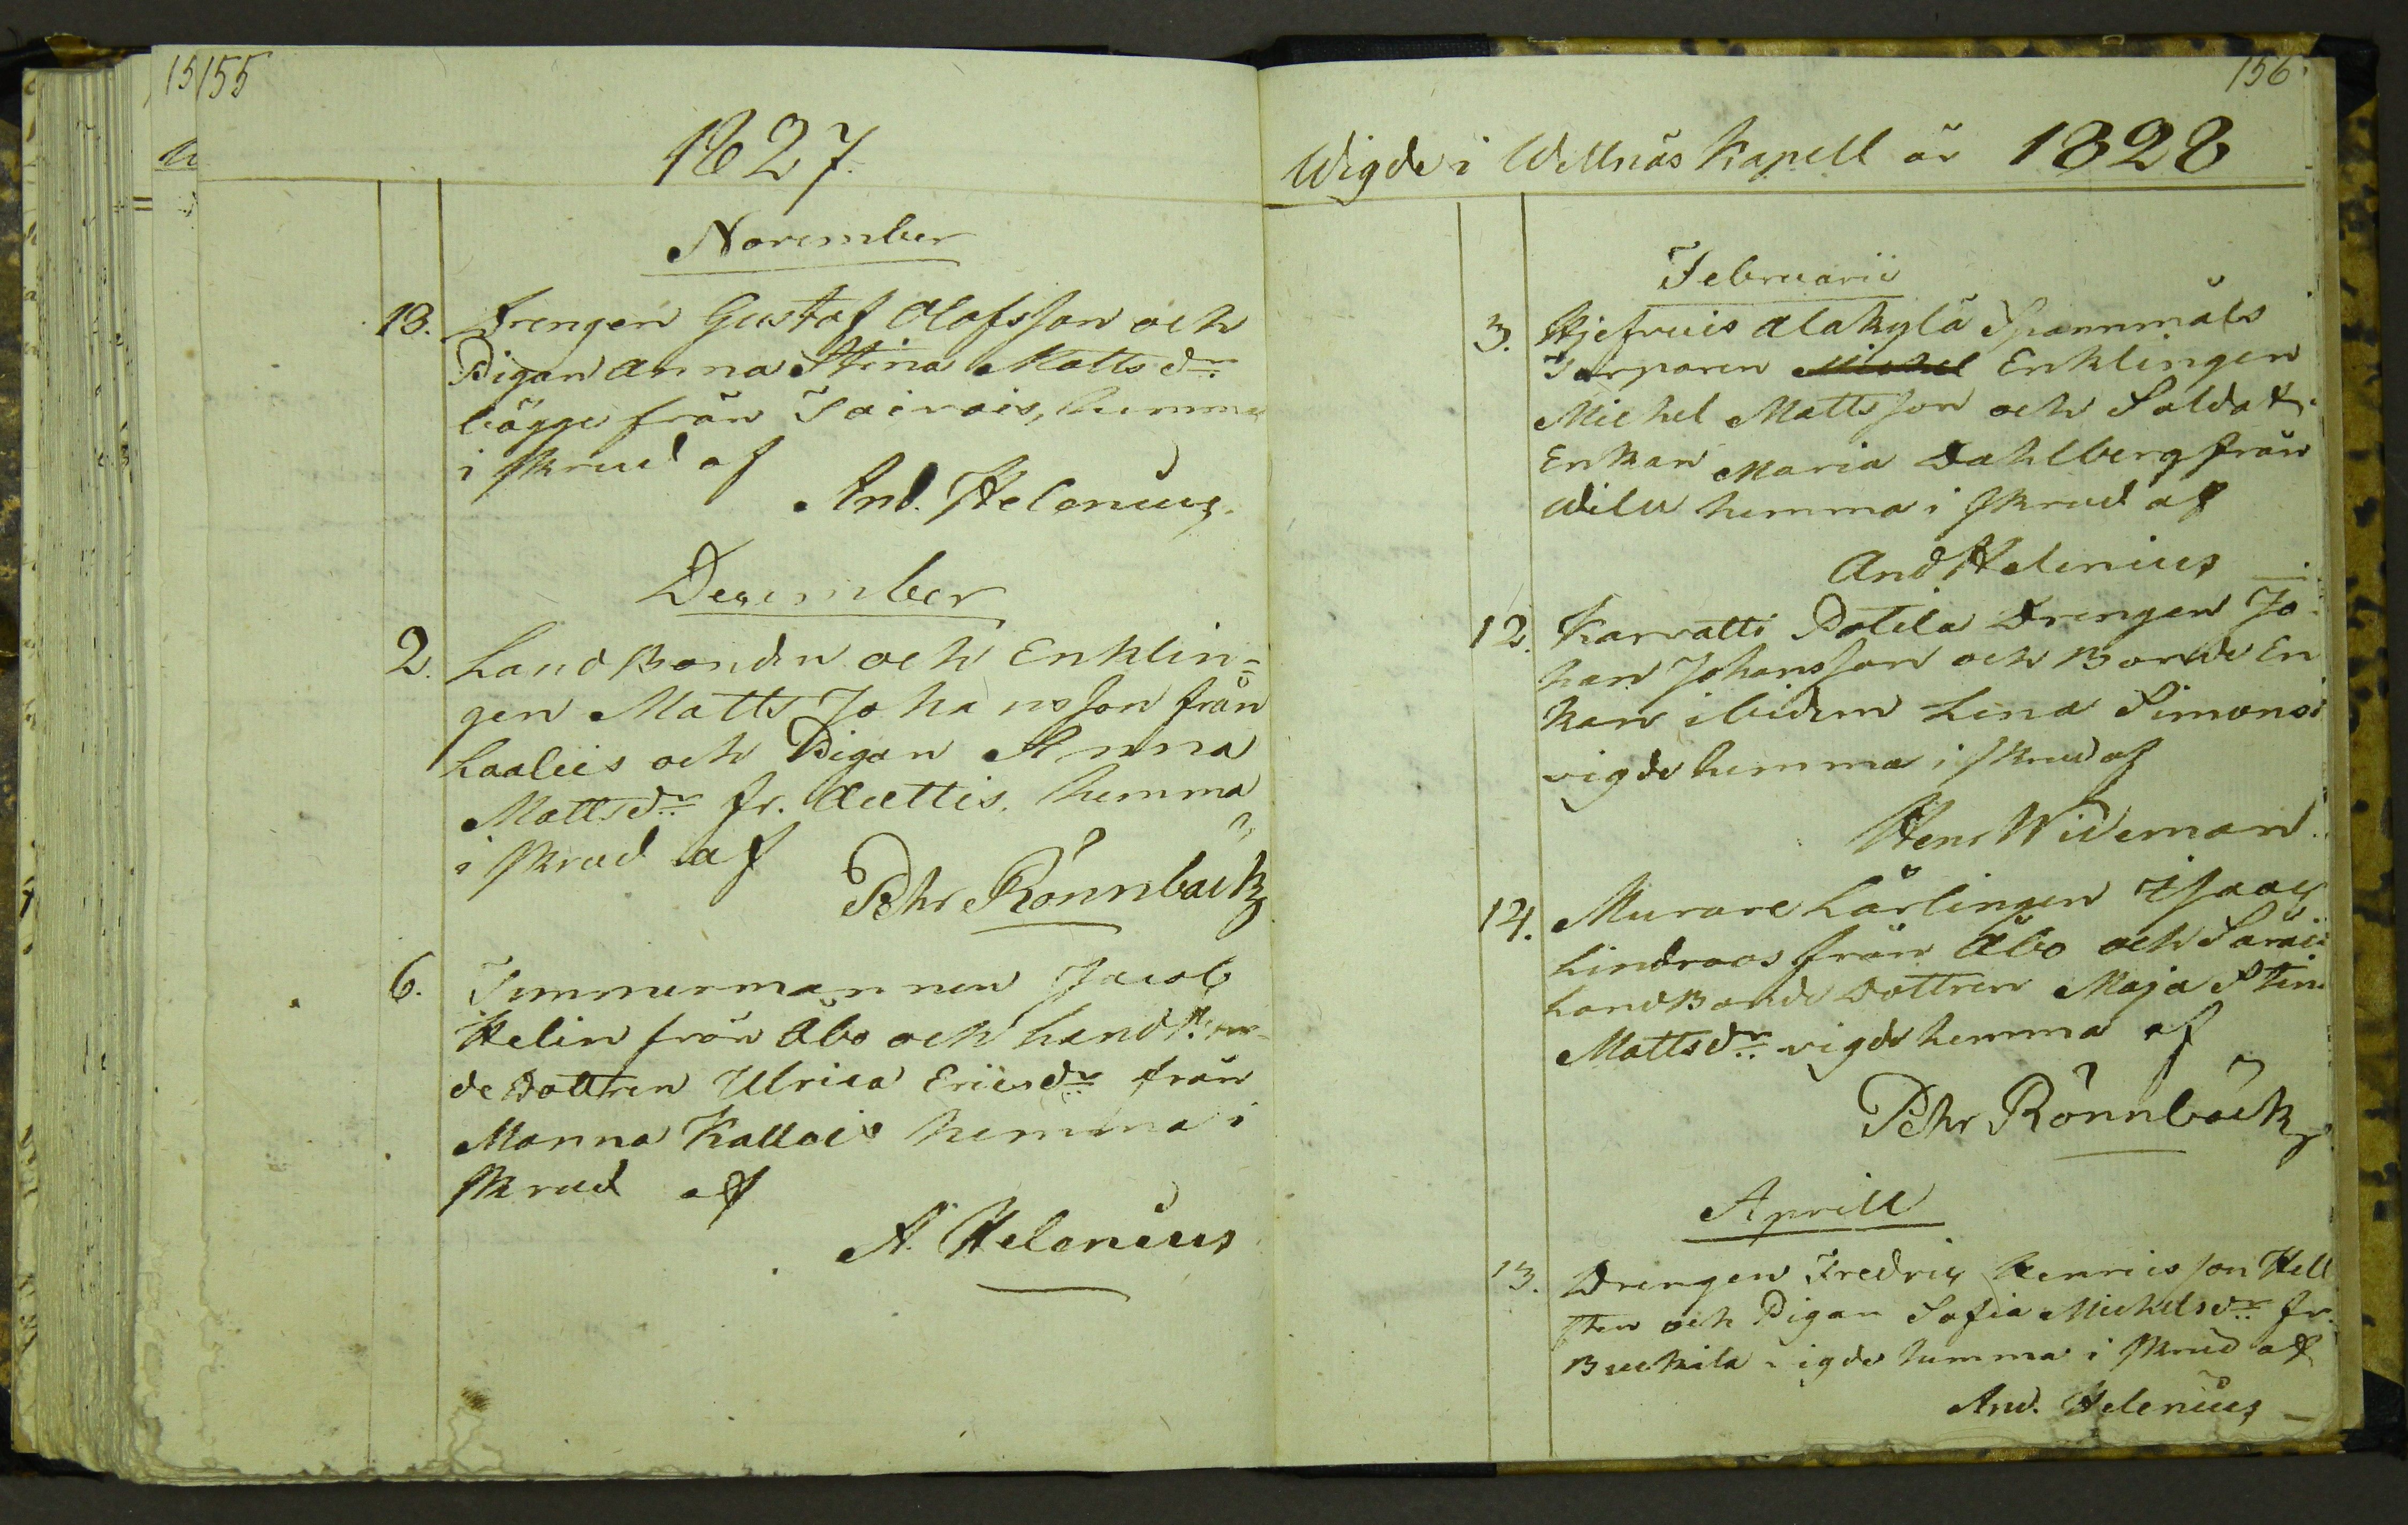 155
1827.
November
13. Drengen Gustaf Olofsson och
Pigan Anna Stina Mattsdr
bägge från Taivois, hemma
i skrud af
And. Helenius.
December
2. LandBonden och Enklin=
gen Matts Johansson från
Laaliis och Pigan Anna
Mattsdr fr. Auttis. hemma
i skrud af
Pehr Rönnback
6. Timmermannen Jacob
Helin från Åbo och Landbon
deDottren Ulrica Ericsdr från
Manna Kallois hemma i
skrud af
A. Helenius
156
Wigde i Willnäs Kapell år 1828
Februarii
3. Alakylä Spannmåls
Torparen Michel Enklingen
Michel Mattsson och Soldat
Enkan Maria Dahlberg från
Wilu hemma i skrud af
And Helenius
12. Karvatti Potila Drengen Jo=
han Johansson och Bonde En
kan ibidem Lena Simonsd
vigde hemma i skrud af
Henr Wideman.
14. Murare Lärlingen Isaac
Lindroos från Åbo och
LandBonde Dottren Maja Stin
Mattsdr vigde hemma af
Pehr Rönnbäck
Aprill
13. Drengen Fredric Henricsson Hell
sten och Pigan Sofia Michelsdr fr.
Buckila vigde hemma i skrud af
And. Helenius